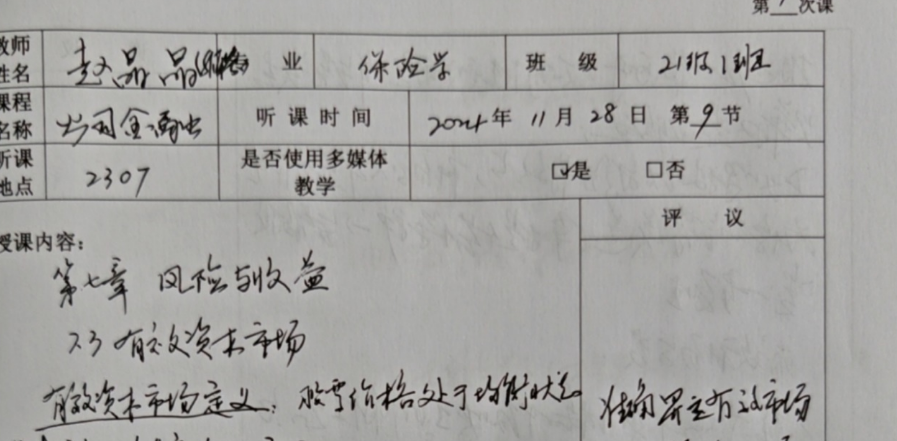 第 次课
教师姓名 赵晶晶 业 保险学 班 级 21级1班
课程名称 公司金融 听课时间 2024年 11月 28日 第9节
听课地点 2307 是否使用多媒体教学 ☑是 □否
授课内容: 评 议
第七章 风险与收益
7.3 有效资本市场
有效资本市场定义: 股票价格处于均衡状态 准确界定有效市场